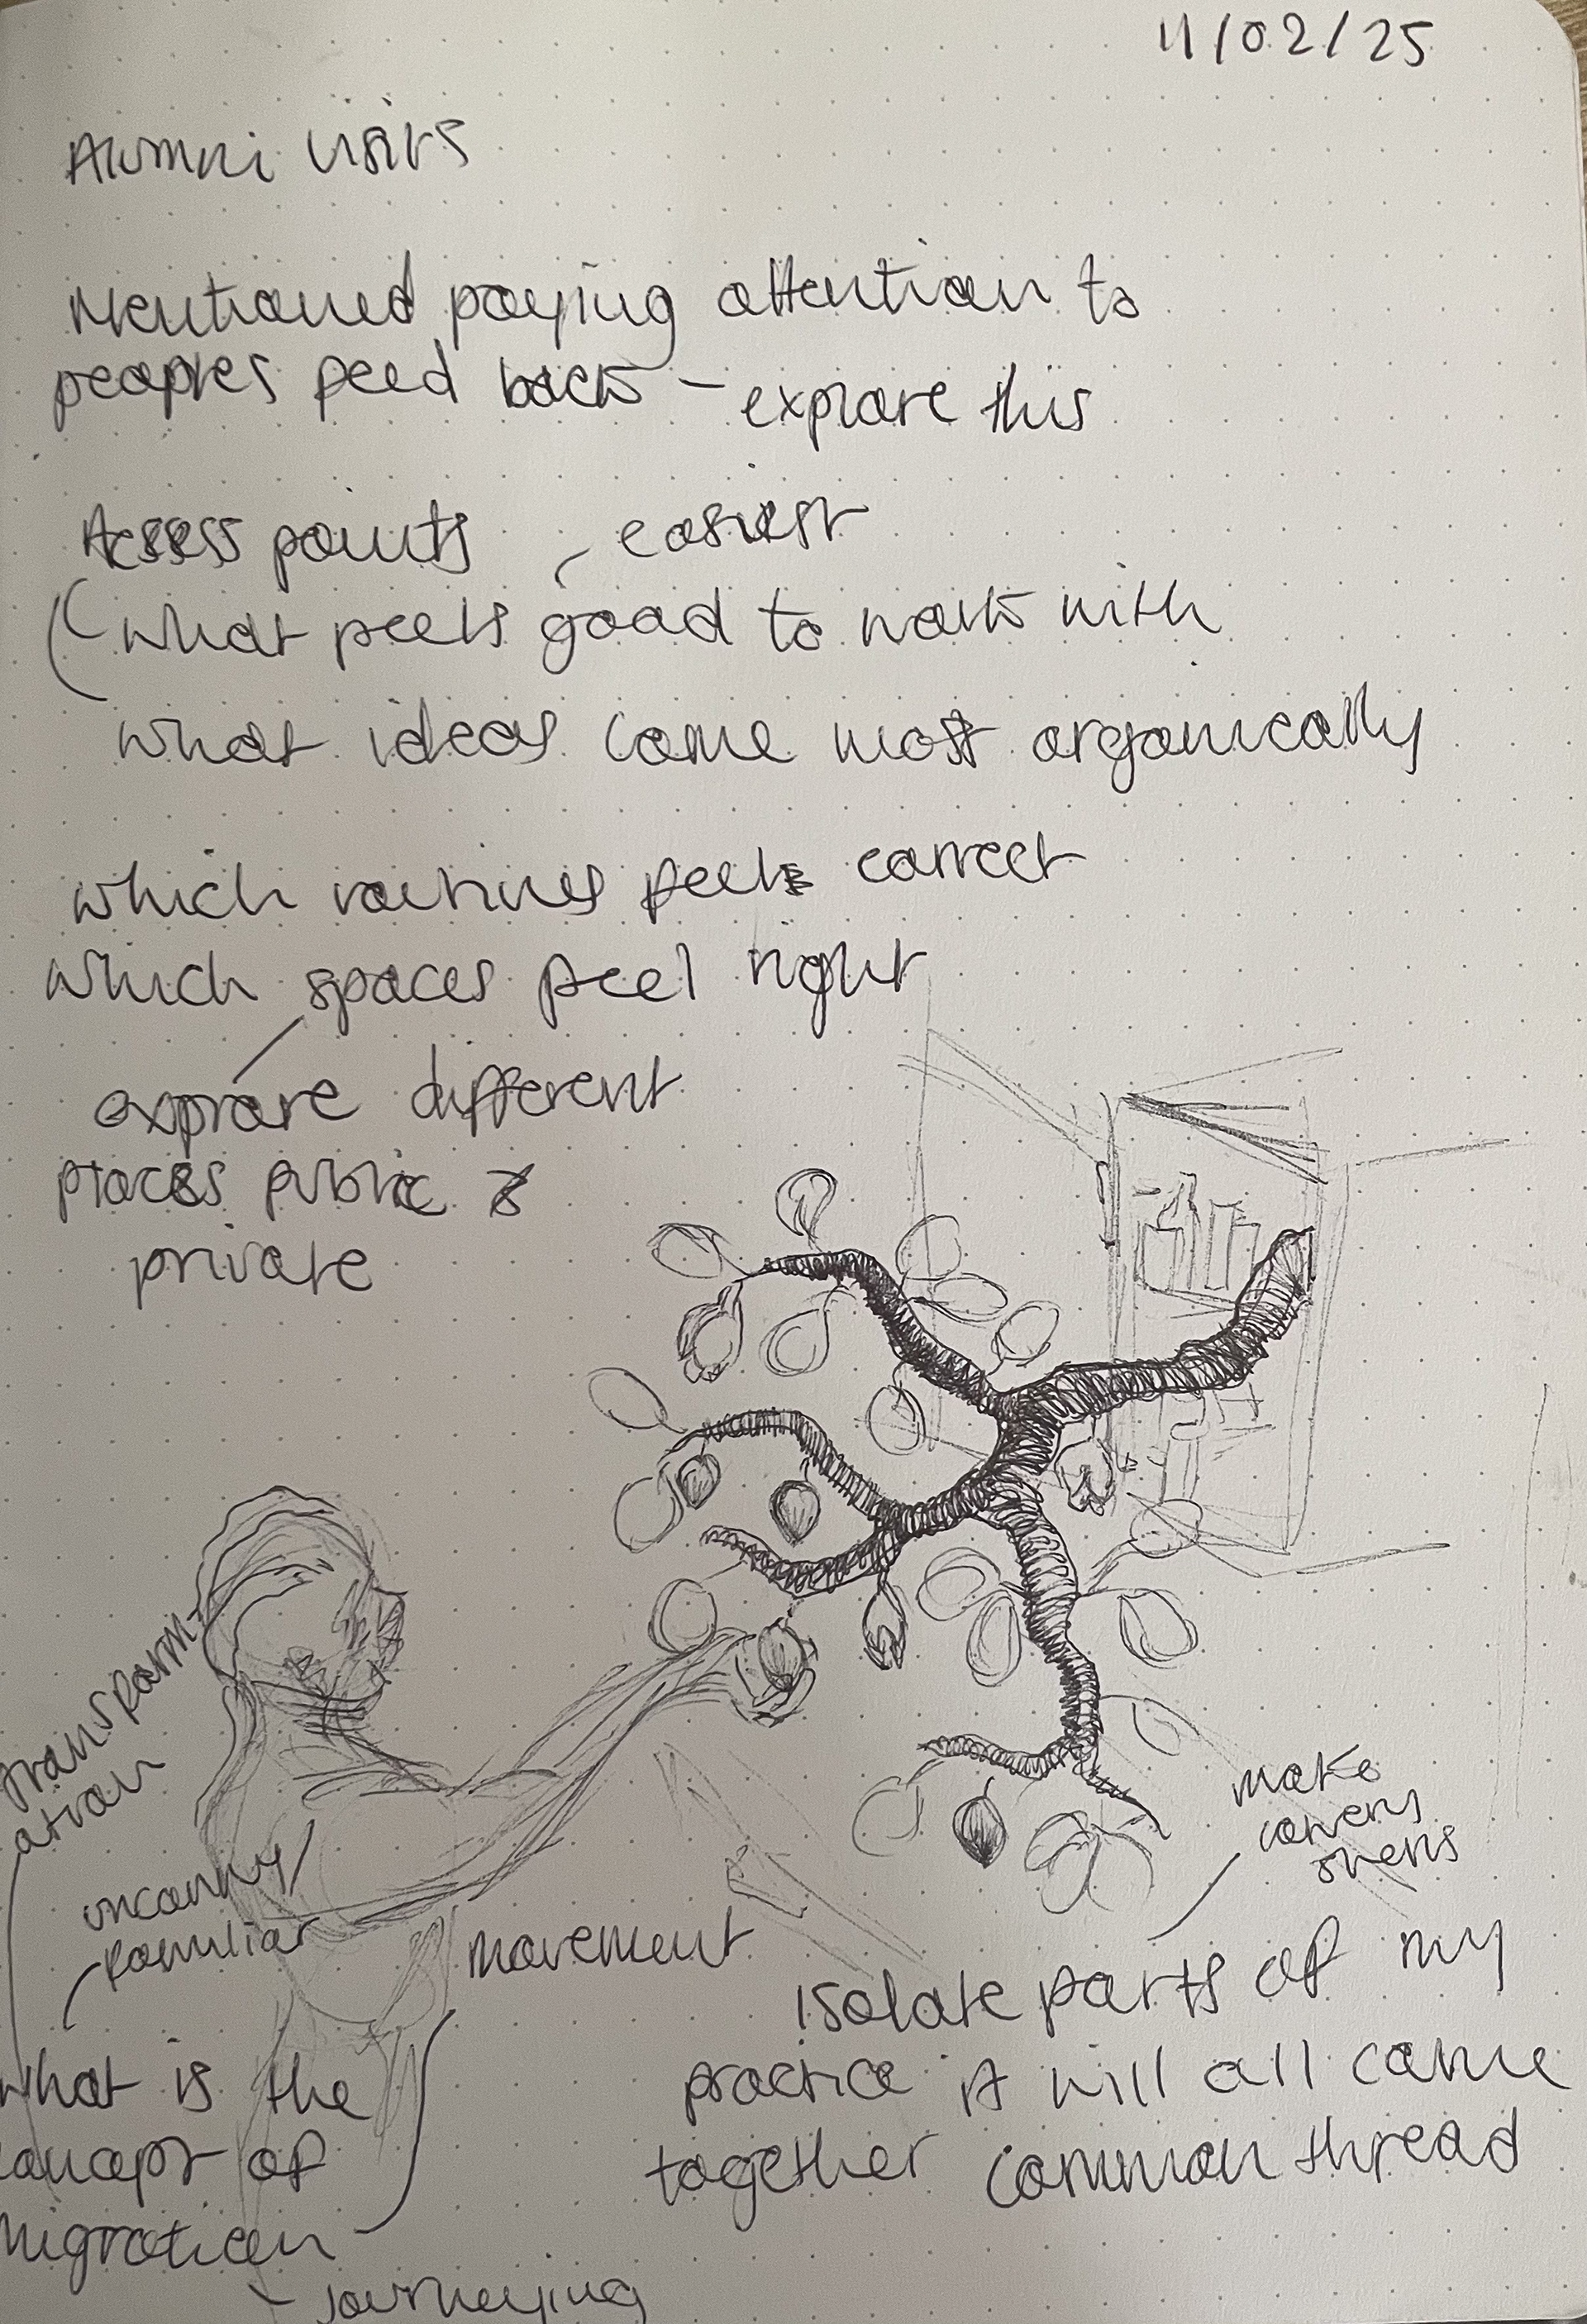 11/02/25
Alumni visits
Mentioned paying attention to
peoples feed back – explore this
Access points
easiest
what feels good to work with
what ideas come most organically
which routines feels correct
which spaces feel right
explore different
places public &
private
transform-
ation
uncanny/
familiar
movement
what is the
concept of
migration
- journeying
make
covens
ovens
isolate parts of my
practice it will all come
together common thread